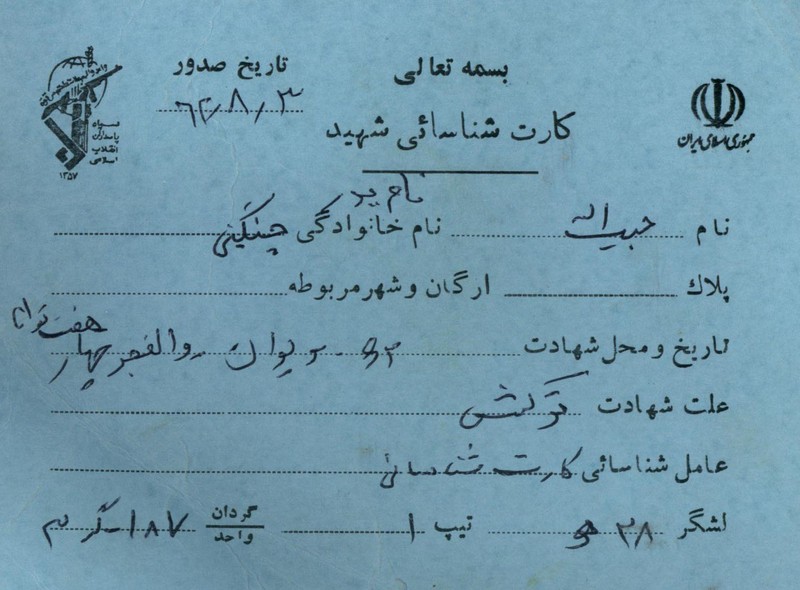 بسمه تعالی
تاریخ صدور
۶۲/۸/۳
کارت شناسائی شهید
جمهوری اسلامی ایران
سپاه پاسداران انقلاب اسلامی
۱۳۵۷
نام حبیب اله نام خانوادگی چنگینی
پلاك ارگان و شهر مربوطه
تاریخ و محل شهادت والفجر چهار
علت شهادت ترکش
عامل شناسائی کارت شناسائی
لشگر ۲۸ تیپ ۱ گردان واحد ۱۸۷